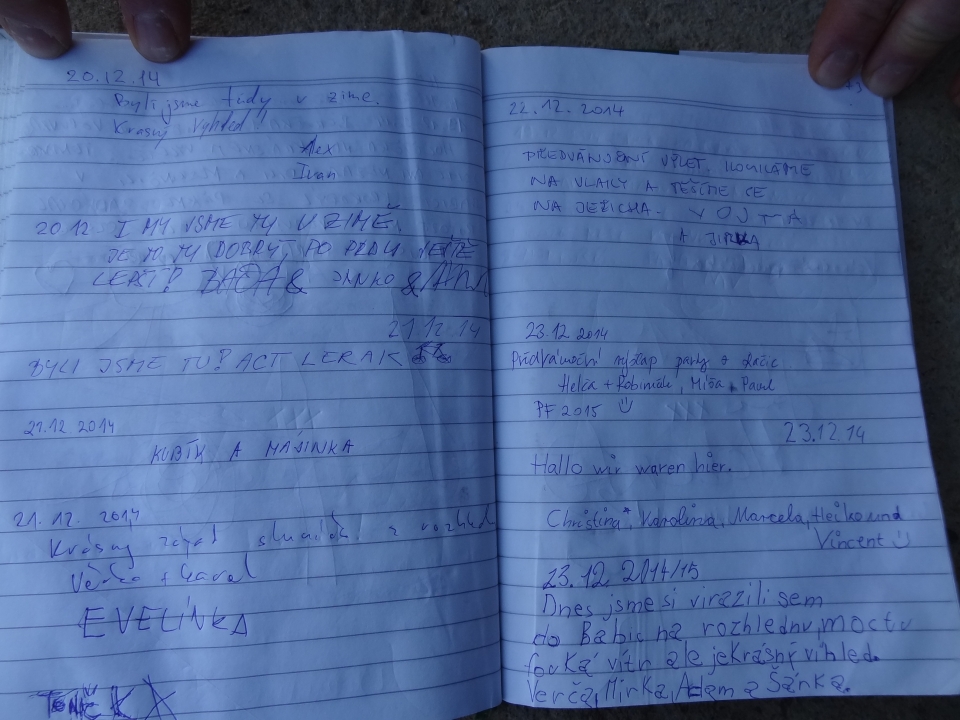 20.12.14
Byli jsme tudy v zimě.
Krásný výhled
Alex
Ivan
20.12. I MY JSME TU V ZIMĚ.
JE TO TU DOBRÝ, PO PÁDU JEŠTĚ
LEPŠÍ! BAĎA & JANKO &
21.12.14
BYLI JSME TU!
21.12 2014
KUBÍK A MAŠINKA
21.12.2014
Krásný západ z rozhled
Věrka + Karel
EVELÍNKA
22.12.2014
PŘEDVÁNOČNÍ VÝLET. KOUKÁME
NA VLAKY A TĚŠÍME SE
NA JEŽÍŠKA. VOJTA
A JIRKA
23.12 2014
Předvánoční výšlap party z
Helča + Robinek, Míša, Pavel
PF 2015
23.12.14
Hallo wir waren hier.
Christina, Karolina, Marcela, Heiko und
Vincent
23.12. 2014/15
Dnes jsme si virazili sem
do Babic na rozhlednu, moctv
fouká vítr ale je krásný víhled.
Verča, Mirka, Adam a Šárka.